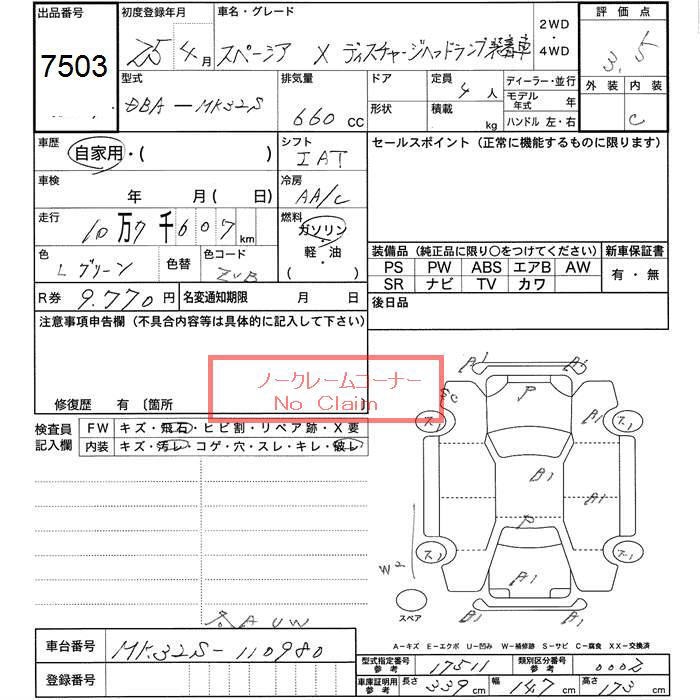 出品番号
7503
初度登録年月
25 4 月
車名・グレード
スペーシア X ディスチャージヘッドランプ装着車
2WD
・
4WD
評価点
3.5
外装 内装
C
型式
DBA-MK32S
排気量
660 cc
ドア
形状
定員
4 人
積載
kg
ディーラー・並行
モデル年式 年
ハンドル 左・右
車歴
自家用・( )
シフト
IAT
セールスポイント（正常に機能するものに限ります）
車検
年 月( 日)
冷房
AA/C
走行
10万7千607 km
燃料
ガソリン
軽・油
( ・ )
色
Lグリーン
色替
色コード
ZUB
装備品（純正品に限り○をつけてください）
新車保証書
PS PW ABS エアB AW
SR ナビ TV カワ
有・無
R券 9.770 円
名変通知期限 月 日
後日品
注意事項申告欄（不具合内容等は具体的に記入して下さい）
ノークレームコーナー
No Claim
修復歴 有 〔箇所 〕
検査員
記入欄
FW キズ・飛石・ヒビ割・リペア跡・X要
内装 キズ・汚レ・コゲ・穴・スレ・キレ・破レ
A1
A1
P
A1
B1
A1
P
W2
A1
A1
スペア
A1
A-キズ E-エクボ U-凹み W-補修跡 S-サビ C-腐食 XX-交換済
車台番号 MK32S-110980
登録番号
型式指定番号
参考
17511
類別区分番号
参考
0002
車庫証明用
参考
長さ 339 cm 幅 147 cm 高さ 173 cm